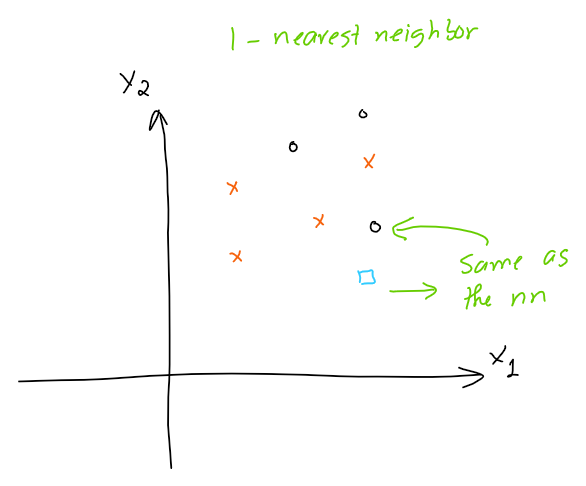 1 - nearest neighbor
x2
same as
the nn
x1